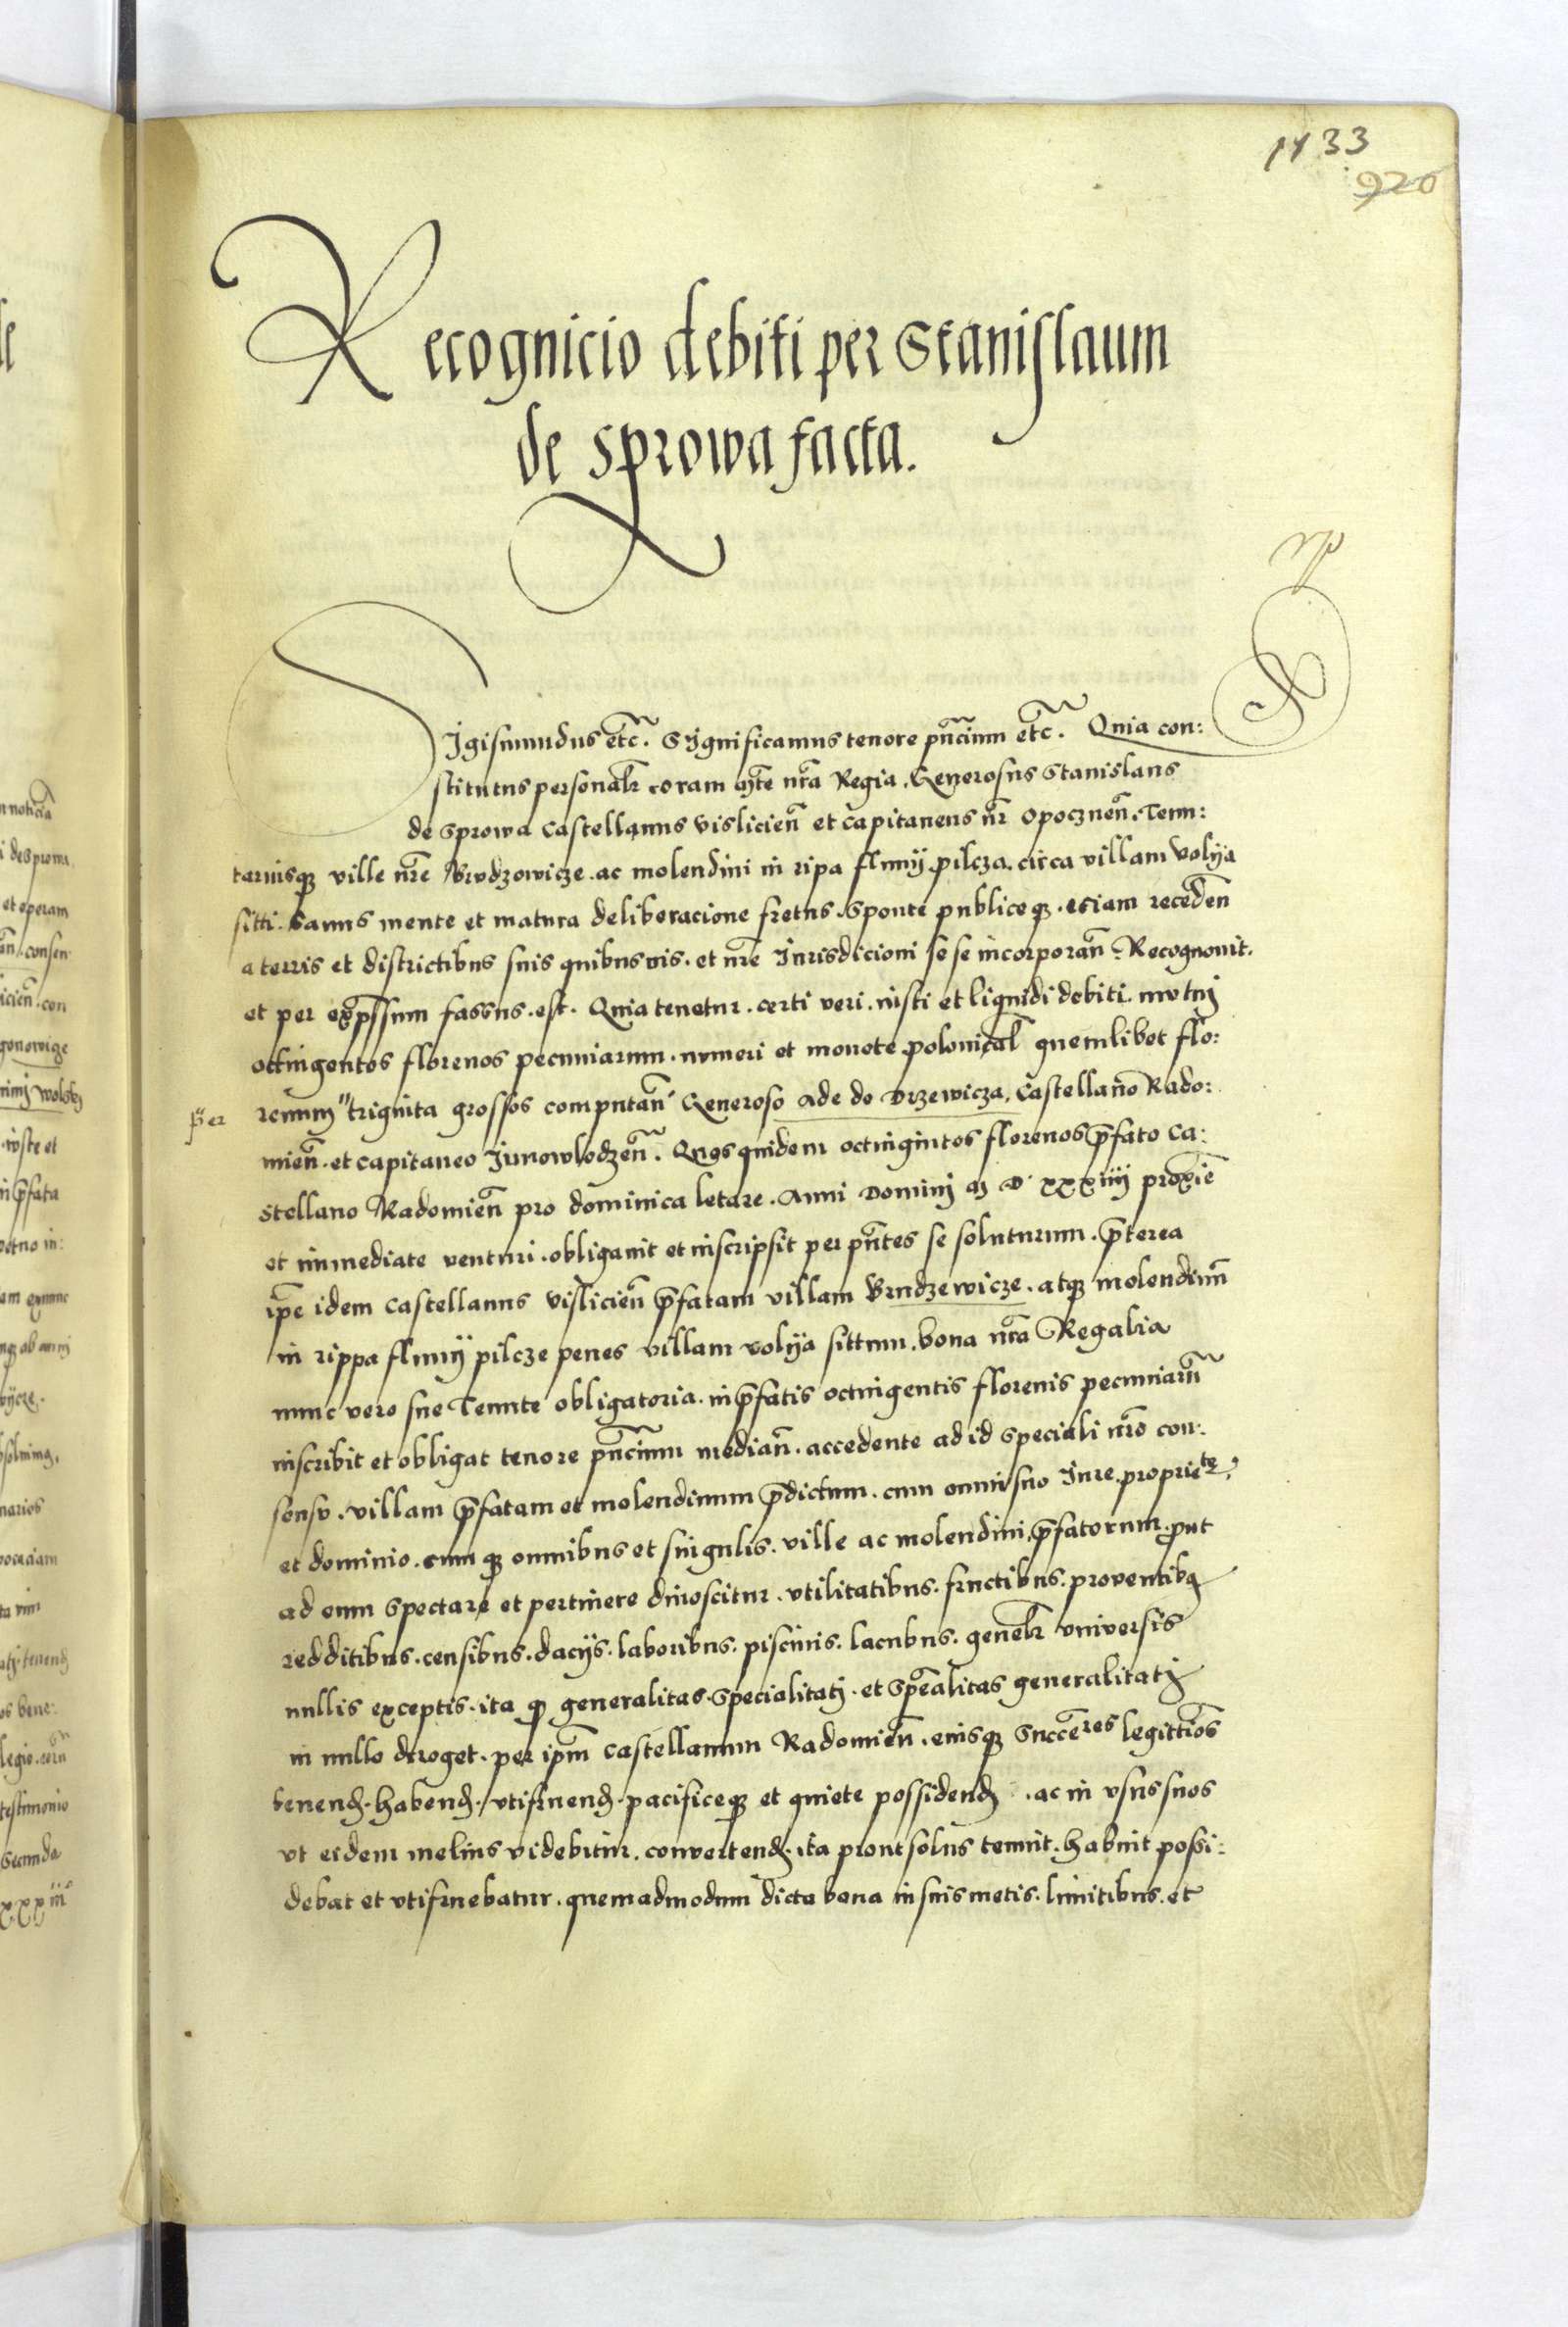 1133
920
Recognicio debiti per Stanislaum
de Sprowa facta.
Sigismundus etc̃. Significamus tenore pñcium etc̃. Quia con:
stitutus personalr̃ coram Mte nrã Regia. Generosus Stanislaus
de Sprowa Castellanus Vislicieñ et Capitaneus nr̃ Opoczneñ. Tenu:
tariusqȝ ville nrẽ Brudzowicze. ac molendini in ripa fluuij pilcza. circa villam Volija
sitti. Sanus mente et matura deliberacione fretus. Sponte publiceqȝ. eciam recedeñ
a terris et districtibus suis quibusuis. et nrẽ Jurisdicioni se se incorporañ. Recognouit.
et per exp̃ssum fassus. est. Quia tenetur. certi veri. iusti et liquidi debiti. mutuj
octingentos florenos pecuniarum. numeri et monete polonical̃ quemlibet flo:
per
renum" triginta grossos computañ Generoso Ade de Drzewicza, Castellano Rado:
mieñ. et Capitaneo Junowlodzeñ. Quos quidem octingintos florenos p̃fato Ca:
stellano Radomieñ pro dominica letare. Anni Dominj M D xxxiiij proxiẽ
et immediate venturi. obligauit et inscripsit per pñtes se soluturum. p̃terea
ip̃e idem Castellanus Vislicieñ p̃fatam villam Brudzewicze. atqȝ molendinũ
in rippa fluuij pilcze penes villam volija sittum. bona nrã Regalia
nunc vero sue Tenute obligatoria. in p̃fatis octingentis florenis pecuniarũ
inscribit et obligat tenore pñcium mediañ. accedente ad id speciali nrõ con:
sensu. villam p̃fatam et molendinum p̃dictum. cum omni suo Jure. proprietẽ
et dominio. cumqȝ omnibus et singulis. ville ac molendini. p̃fatorum. prout
ad eum spectare et pertinere dinoscitur. vtilitatibus. fructibus. prouentibȝ
redditibus. censibus. dacijs. laboribus. piscinis. lacubus. generalr̃ vniuersis
nullis exceptis. ita qđ generalitas. specialitatj. et spẽalitas generalitatj
in nullo deroget. per ip̃m Castellanum Radomieñ. eiusqȝ Succẽres legittiõs
tenend. habend. vtifruend. pacificeqȝ et quiete possidend. ac in vsus suos
vt eidem melius videbitur. conuertend. ita prout solus tenuit. habuit possi:
debat et vtifruebatur. quemadmodum dicta bona in suis metis. limitibus. et